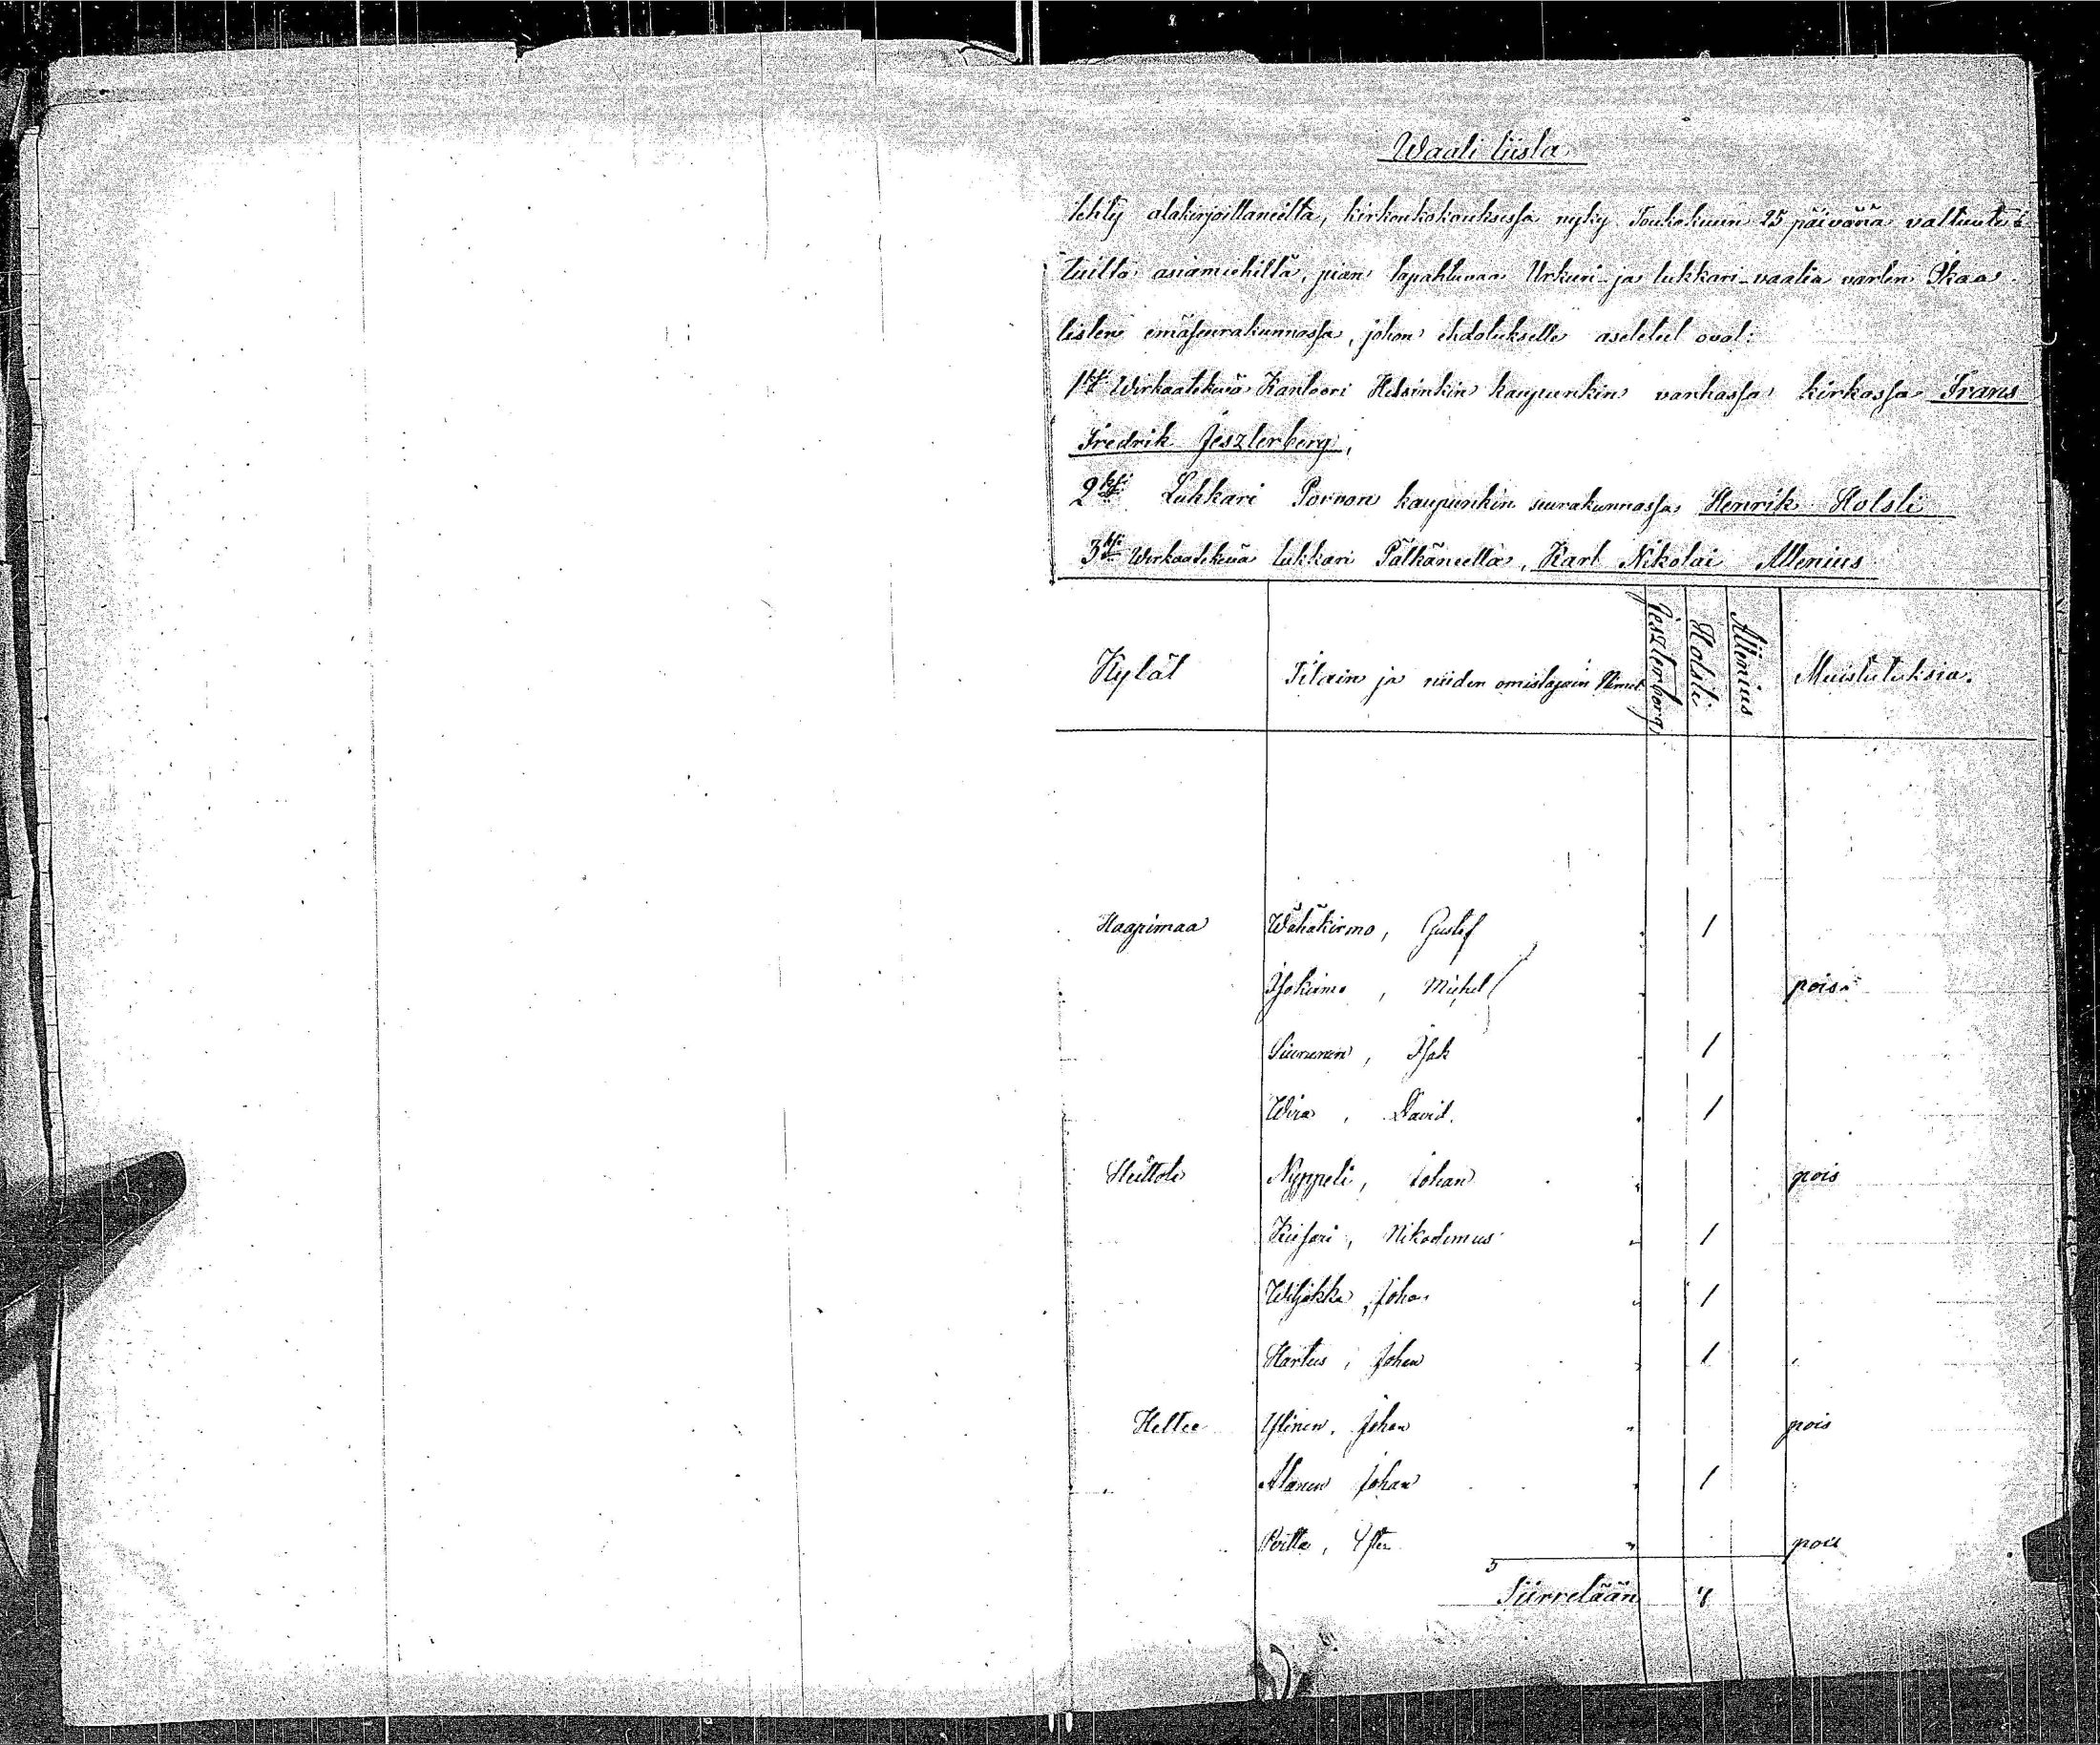 Waali liista
tehty alakirjoittaneilta, kirkonkokouksessa nyky Toukokuun 25 päivänä valtuute-
tuilta asiamiehiltä, pian tapahtuvaa Urkuri- ja lukkari-vaalia varten Ikaa-
listen emäseurakunnassa, johon ehdotukselle asetetut ovat:
1ksi Wirkaatekevä Kanttori Helsinkin kaupunkin vanhassa kirkossa Frans
Fredrik Jeszterberg,
2ksi Lukkari Porvon kaupunkin seurakunnassa Henrik Holsti
3ksi Wirkaatekevä lukkari Pälkäneellä, Karl Nikolai Allenius
Kylät Tilain ja niiden omistajain Nimet Jeszterberg Holsti Allenius Muistutuksia.
Haapimaa Wähäkirmo, Gustaf 1
Isokirmo, Michel pois
Siurunen, Isak 1
Wira, David. 1
Heittola Nyppeli, Johan pois
Keisari, Nikodemus 1
Wiljakka, Johan 1
Hartus, Johan 1
Heltee Ylinen, Johan pois
Alanen Johan 1
Poitta, pois
Siirretään 7